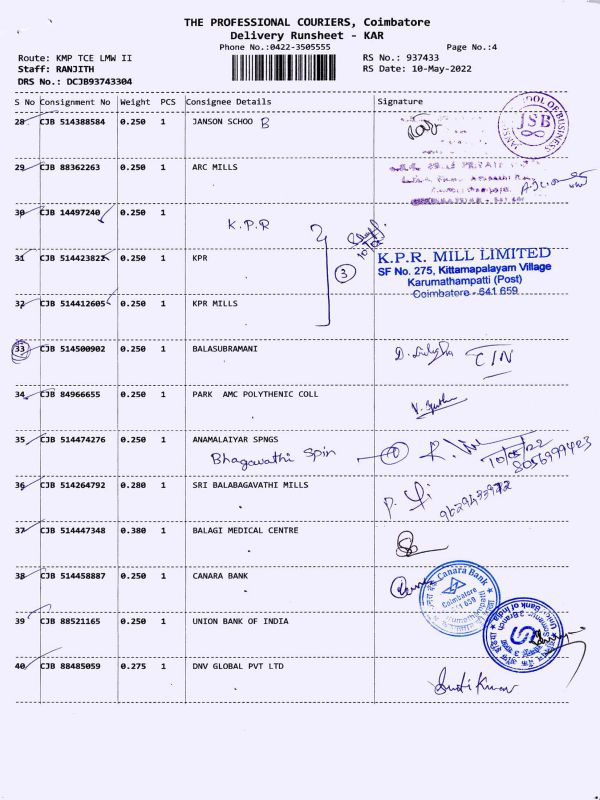 THE PROFESSIONAL COURIERS, Coimbatore
Delivery Runsheet - KAR
Phone No.:0422-3505555 Page No.:4
Route: KMP TCE LMW II RS No.: 937433
Staff: RANJITH RS Date: 10-May-2022
DRS No.: DCJB93743304
S No Consignment No Weight PCS Consignee Details Signature
28 CJB 514388584 0.250 1 JANSON SCHOO B
JSB
29 CJB 88362263 0.250 1 ARC MILLS
30 CJB 14497240 0.250 1
K.P.R
3
31 CJB 514423822 0.250 1 KPR
K.P.R. MILL LIMITED
SF No. 275, Kittamapalayam Village
Karumathampatti (Post)
Coimbatore - 641 659
32 CJB 514412605 0.250 1 KPR MILLS
33 CJB 514500902 0.250 1 BALASUBRAMANI
C/N
34 CJB 84966655 0.250 1 PARK AMC POLYTHENIC COLL
35 CJB 514474276 0.250 1 ANAMALAIYAR SPNGS
Bhagavathi Spin
10/05/22
36 CJB 514264792 0.280 1 SRI BALABAGAVATHI MILLS
37 CJB 514447348 0.380 1 BALAGI MEDICAL CENTRE
38 CJB 514458887 0.250 1 CANARA BANK
Canara Bank
Coimbatore
39 CJB 88521165 0.250 1 UNION BANK OF INDIA
Union Bank of India
40 CJB 88485059 0.275 1 DNV GLOBAL PVT LTD